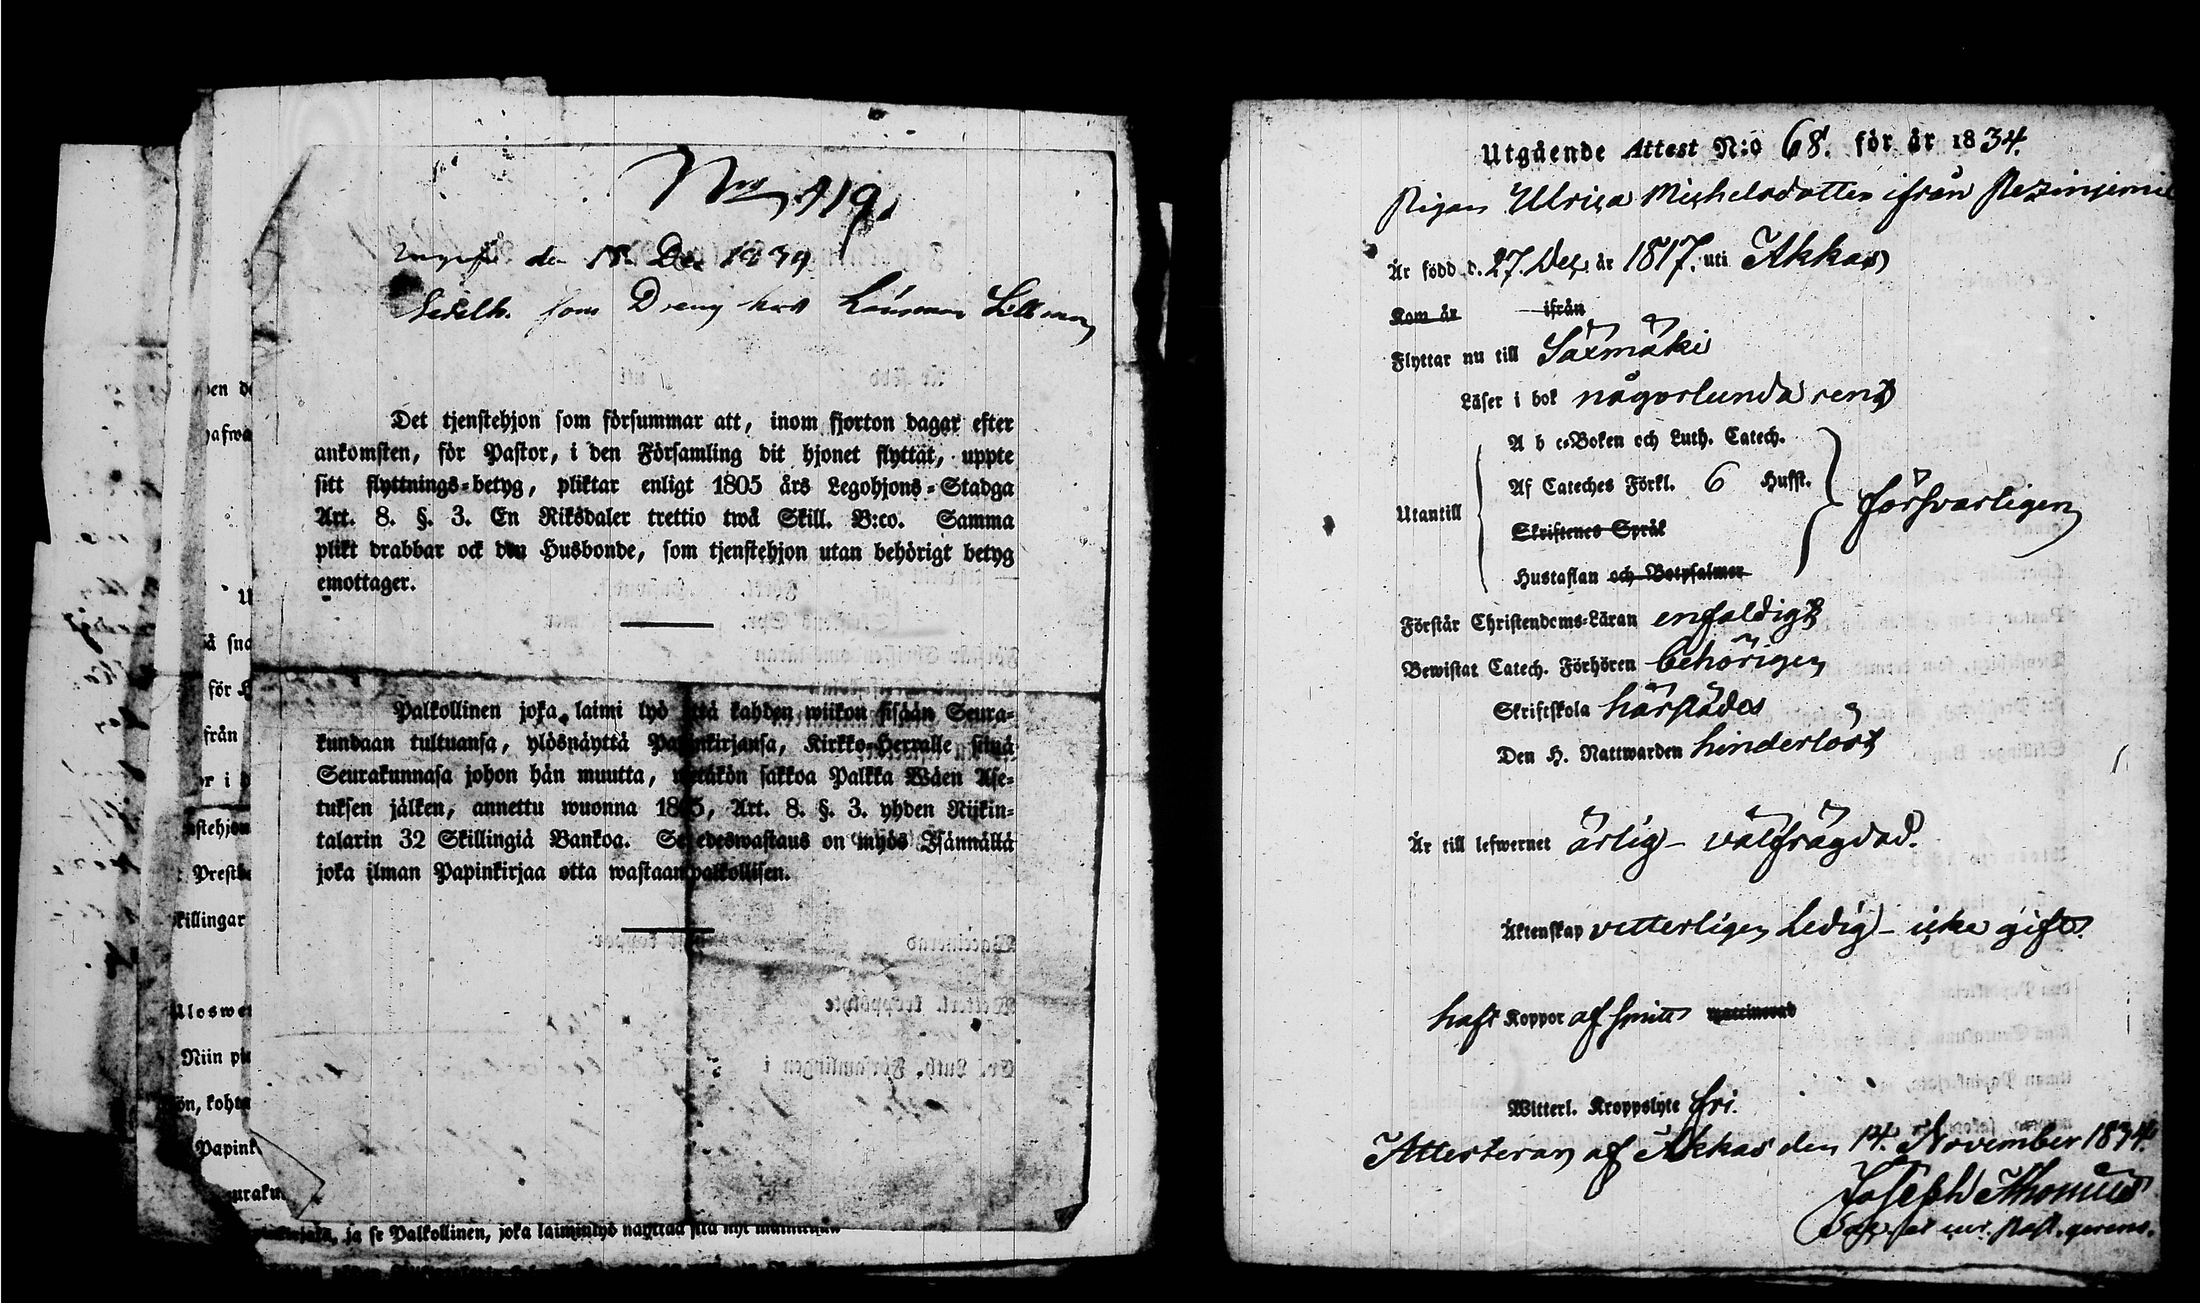 No 119.
den 18 Dec 1834
som Dreng hos Länsman Lillman
Det tjenstehjon som försummar att, inom fjorton dagar efter
ankomsten, för Pastor, i den Församling dit hjonet flyttat, uppte
sitt flyttnings-betyg, pliktar enligt 1805 års Legohjons-Stadga
Art. 8. §. 3. En Riksdaler trettio twå Skill. B:co. Samma
plikt drabbar ock den Husbonde, som tjenstehjon utan behörigt betyg
emottager.
Palkollinen joka laimi lyö että kahden wiikon sisään Seura-
kundaan tultuansa, ylösnäyttä Papinkirjansa, Kirkko-Herralle siinä
Seurakunnasa johon hän muutta, wetäkön sakkoa Palkka Wäen Ase-
tuksen jälken, annettu wuonna 1805, Art. 8. §. 3. yhden Riikin-
talarin 32 Skillingiä Bankoa. Se edeswastaus on myös Isännällä
joka ilman Papinkirjaa otta wastaan palkollisen.
ja se Palkollinen, joka laiminlyö näyttää sitä nyt
för
från
Prest
killingar
Niin
Papink
Utgående Attest N:o 68. för år 1834.
Pigan Ulrica Michelsdotter ifrån
Är född d. 27. Dec. år 1817. uti Akkas
Kom år ifrån
Flyttar nu till Säxmäki
Läser i bok någorlunda rent
A b c-Boken och Luth. Catech.
Af Cateches Förkl. 6 Hufst.
Utantill försvarligen
Skriftenes Språk
Hustaflan och Botpsalmer
Förstår Christendoms-Läran enfaldigt
Bewistat Catech. Förhören behörigen
Skriftskola härstädes
Den H. Nattwarden hinderlöst
Är till lefwernet ärlig - välfrägdad.
Äktenskap vetterligen Ledig - icke gift.
haft Koppor af smitta vaccinerad
Witterl. Kroppslyte fri.
Attesteras af Akkas den 14. November 1834.
Joseph